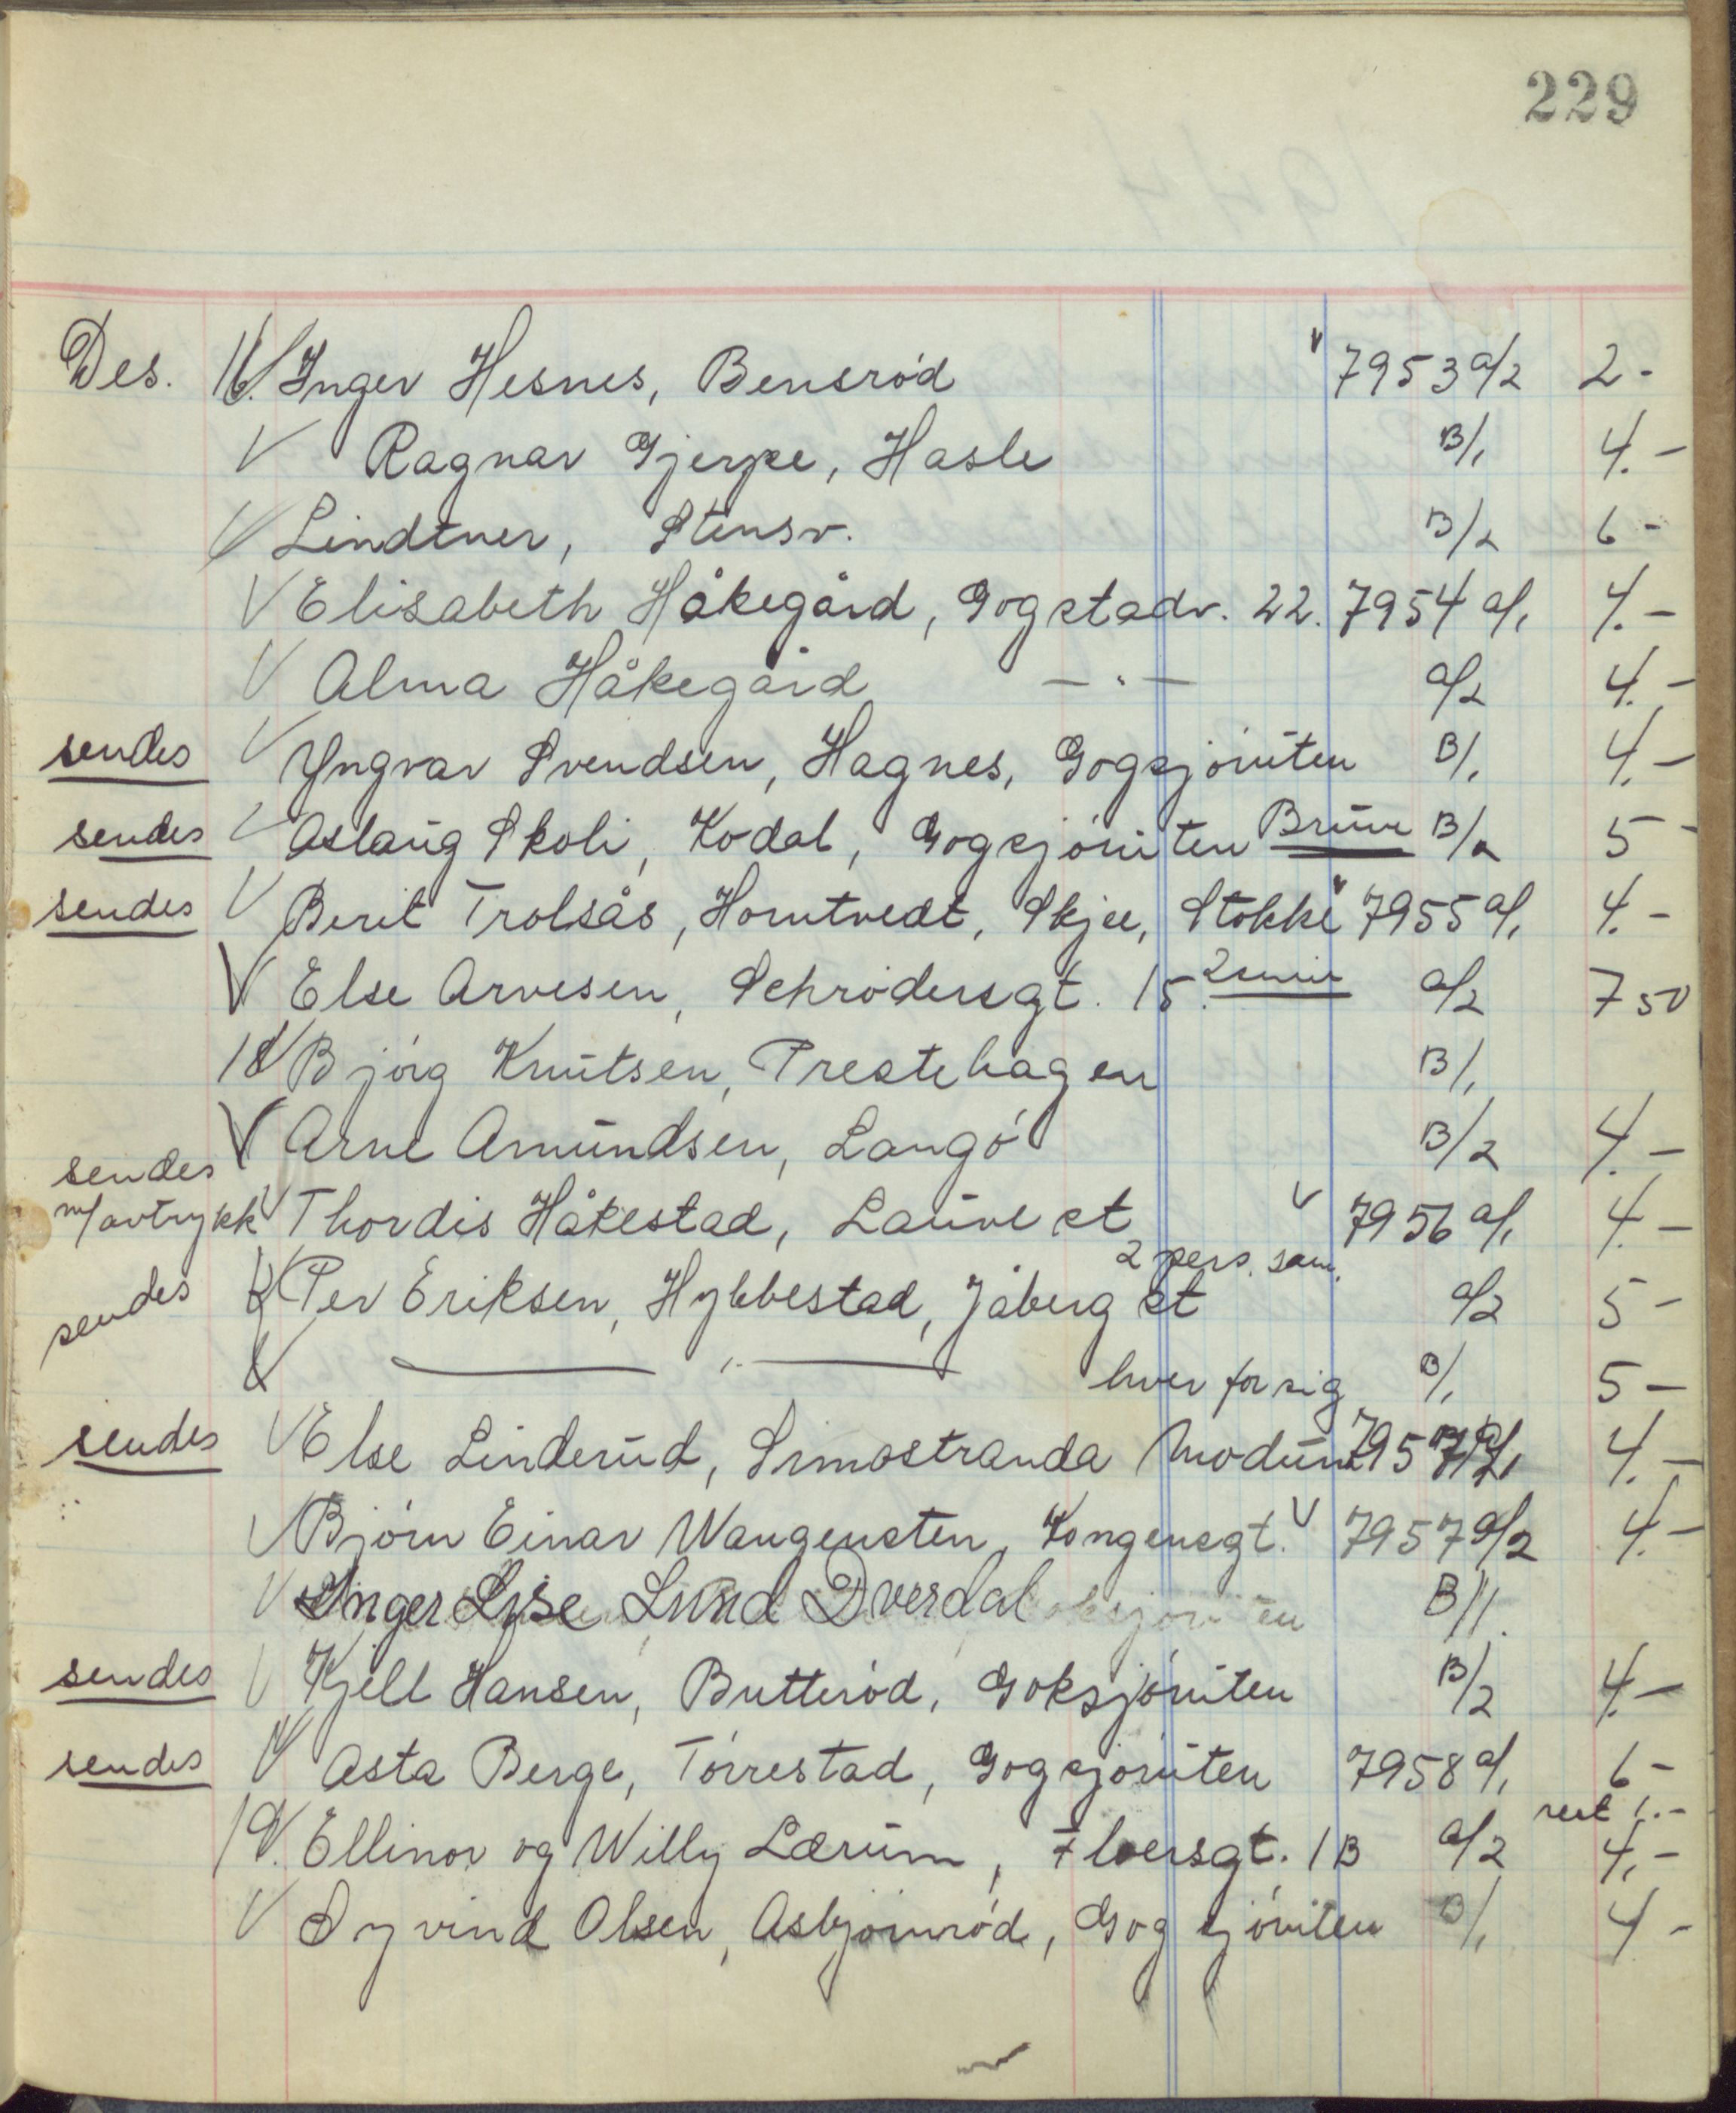 229
Des. 16. Inger Hesnes, Bensrød 7953 a/2 2-
Ragnar Gjerpe, Hasle B/1 4.-
Lindtner, Stensv. B/2 6-
Elisabeth Håkegård, Gogstadv. 22. 7954 a/1 4.-
Alma Håkegård -"- a/2 4.-
sendes Yngvar Svendsen, Hagnes, Gogsjøruten B/1 4.-
sendes Aslaug Skoli, Kodal, Gogsjøruten Brune B/2 5-
sendes Berit Trolsås, Horntvedt, Skjee, Stokke 7955 a/1 4.-
Else Arvesen, Schrødersgt. 15. a/2 7 50
18 Bjørg Knutsen, Prestehagen B/1
Arne Amundsen, Langø B/2 4.-
sendes
m/avtrykk Thordis Håkestad, Lauve st 7956 a/1 4.-
2 pers. sam.
sendes Per Eriksen, Hybbestad, Jåberg st a/2 5-
-"- hver for sig B/1 5-
sendes Else Linderud, Simostranda Modum 7957 a/1 4.-
Bjørn Einar Wangensten, Kongensgt. 7957 a/2 4.-
Inger Lise Lund Dverdal B/1.
sendes Kjell Hansen, Butterød, Goksjøruten B/2 4.-
sendes Asta Berge, Tørrestad, Gogsjøruten 7958 a/1 6-
rest 1.-
19. Ellinor og Willy Lærum, Fløersgt. 1B a/2 4.-
Øyvind Olsen, Asbjørnrød, Gogsjøruten B/1 4-